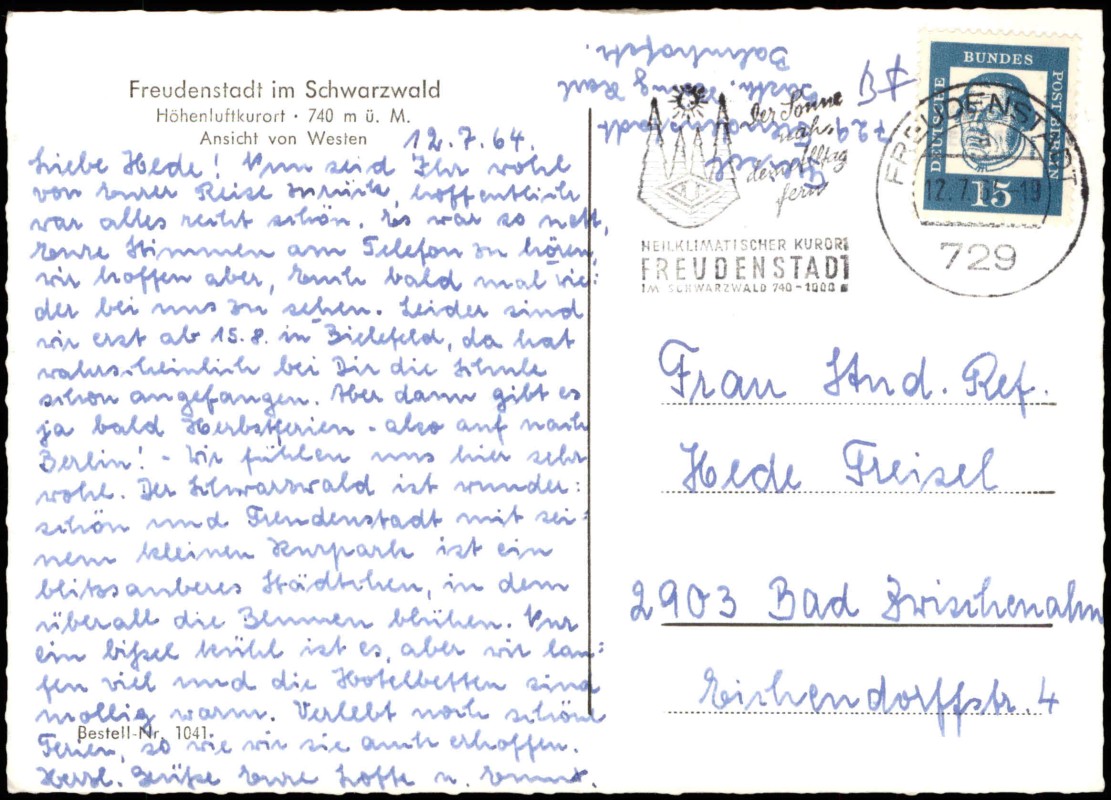 Freudenstadt im Schwarzwald
Höhenluftkurort · 740 m ü. M.
Ansicht von Westen
12.7.64
Liebe Hede! Nun seid Ihr wohl
von Eurer Reise zurück, hoffentlich
war alles recht schön. Es war so nett,
Eure Stimmen am Telefon zu hören,
wir hoffen aber, Euch bald mal wie-
der bei uns zu sehen. Leider sind
wir erst ab 15.8. in Bielefeld, da hat
wahrscheinlich bei Dir die Schule
schon angefangen. Aber dann gibt es
ja bald Herbstferien - also auf nach
Berlin! - Wir fühlen uns hier sehr
wohl. Der Schwarzwald ist wunder-
schön und Freudenstadt mit sei-
nem kleinen Kurpark ist ein
blitzsauberes Städtchen, in dem
überall die Blumen blühen. Nur
ein bißel kühl ist es, aber wir lau-
fen viel und die Hotelbetten sind
mollig warm. Verlebt noch schöne
Ferien, so wie wir sie auch erhoffen.
Herzl. Grüße Eure und
Bestell-Nr. 1041
729 Freudenstadt
Bahnhofstr.
Der Sonne
nah,
dem Alltag
fern
HEILKLIMATISCHER KURORT
FREUDENSTADT
IM SCHWARZWALD 740-1000 m
FREUDENSTADT
12.7.64-19
729
DEUTSCHE
BUNDES
POST BERLIN
15
Frau Stud. Ref.
Hede Freisel
2903 Bad Zwischenahn
Eichendorffstr. 4